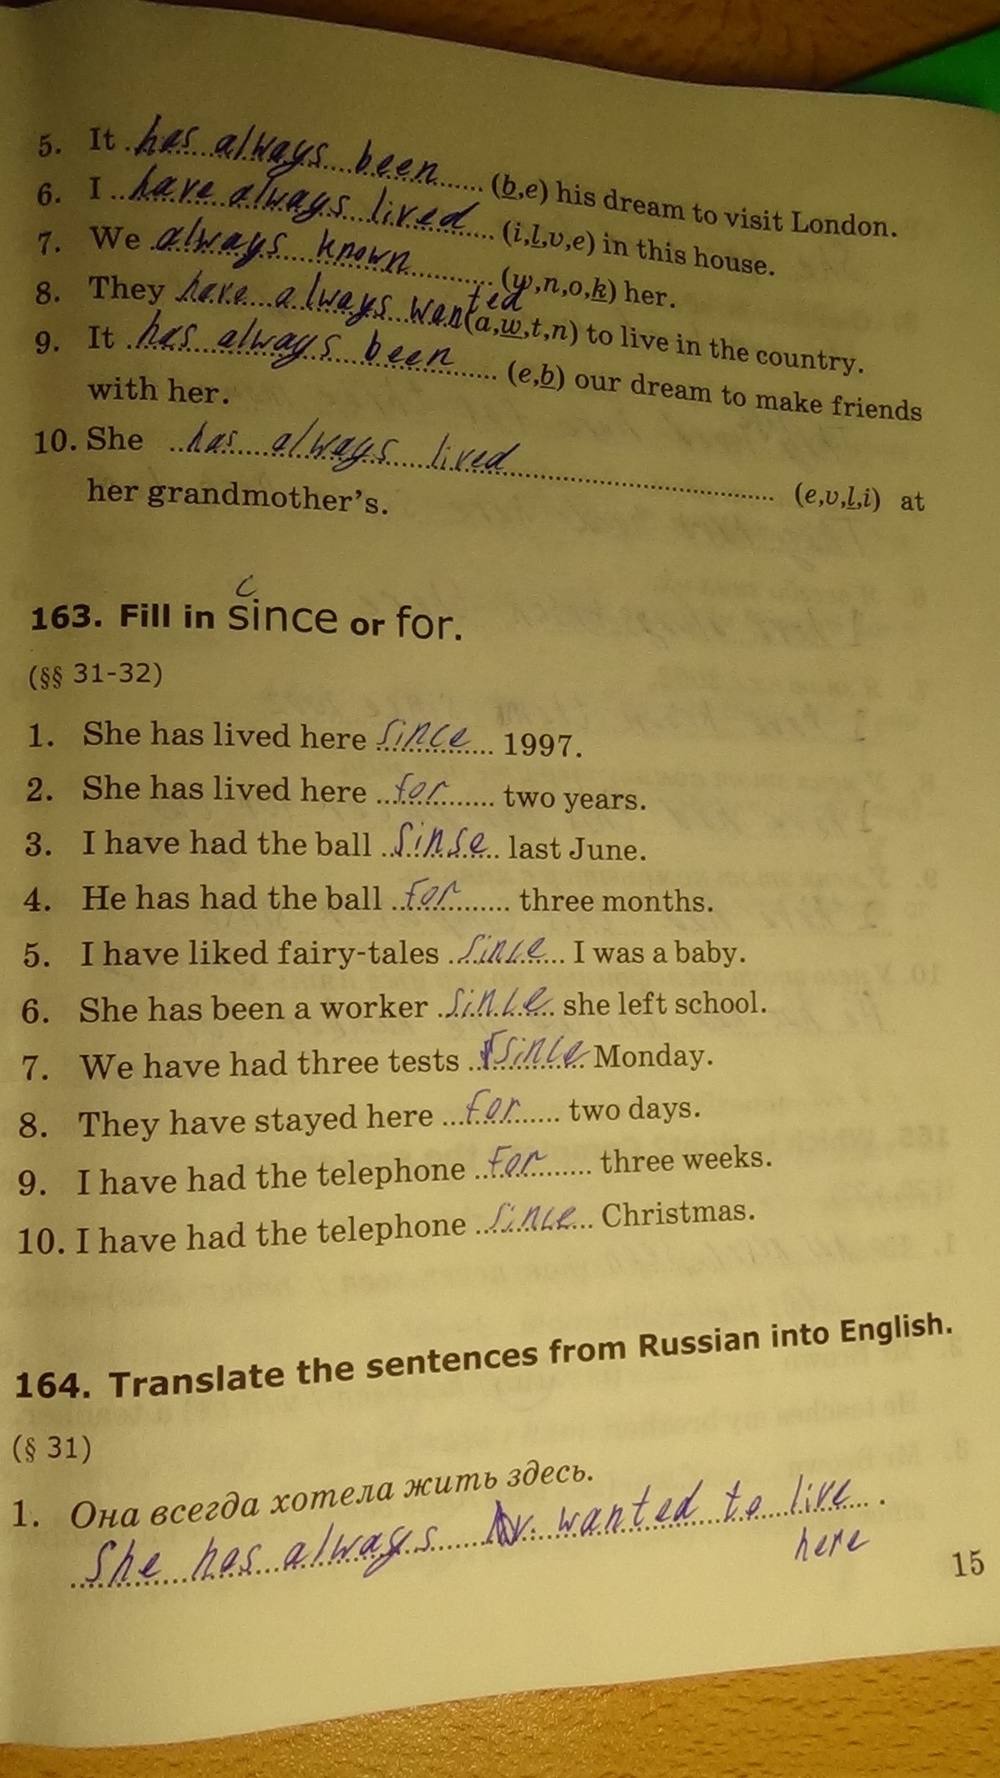 5. It has always been (b,e) his dream to visit London.
6. I have always lived (i,l,v,e) in this house.
7. We always known (w,n,o,k) her.
8. They have always wanted (a,w,t,n) to live in the country.
9. It has always been (e,b) our dream to make friends
with her.
10. She has always lived (e,v,l,i) at
her grandmother's.
c
163. Fill in since or for.
(§§ 31-32)
1. She has lived here since 1997.
2. She has lived here for two years.
3. I have had the ball sinse last June.
4. He has had the ball for three months.
5. I have liked fairy-tales since I was a baby.
6. She has been a worker since she left school.
7. We have had three tests since Monday.
8. They have stayed here for two days.
9. I have had the telephone for three weeks.
10. I have had the telephone since Christmas.
164. Translate the sentences from Russian into English.
(§ 31)
1. Она всегда хотела жить здесь.
She has always wanted to live.
here
15